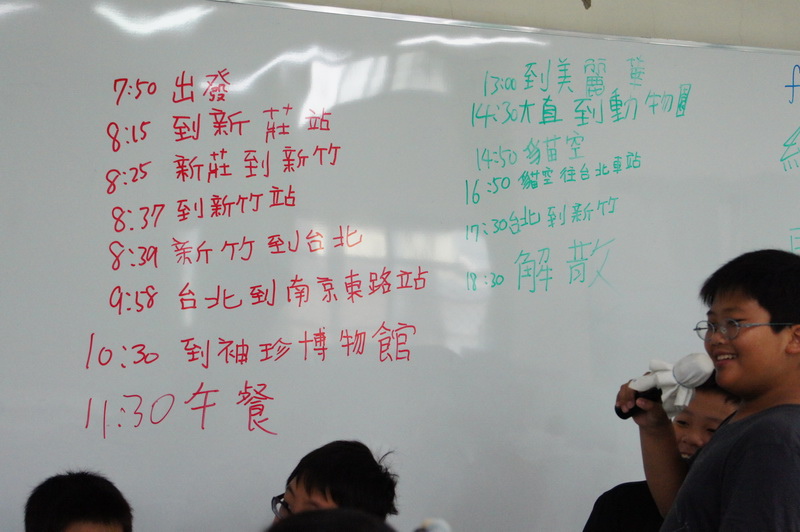 7:50 出發
8:15 到新莊站
8:25 新莊到新竹
8:37 到新竹站
8:39 新竹到台北
9:58 台北到南京東路站
10:30 到袖珍博物館
11:30 午餐
13:00 到美麗華
14:30 大直到動物園
14:50 貓空
16:50 貓空往台北車站
17:30 台北到新竹
18:30 解散